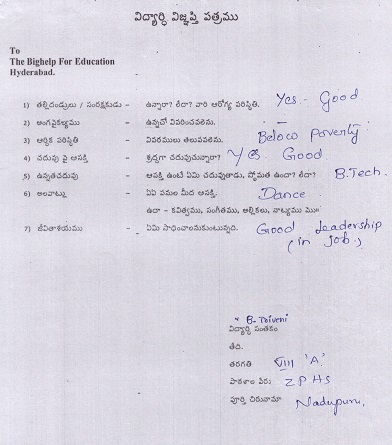 విద్యార్థి విజ్ఞప్తి పత్రము
To
The Bighelp For Education
Hyderabad.
1) తల్లిదండ్రులు / సంరక్షకుడు - ఉన్నారా? లేదా? వారి ఆరోగ్య పరిస్థితి. Yes - Good
2) అంగవైకల్యము - ఉన్నచో వివరించవలెను.
3) ఆర్థిక పరిస్థితి - వివరములు తెలుపవలెను. Below Poverty
4) చదువు పై ఆసక్తి - శ్రద్ధగా చదువుచున్నారా? Yes Good
5) ఉన్నతచదువు - ఆసక్తి ఉంటే ఏమి చదువుతాడు, స్తోమత ఉందా? లేదా? B.Tech.
6) అలవాట్లు - ఏఏ పనుల మీద ఆసక్తి. Dance
ఉదా - కవిత్వము, సంగీతము, అల్లికలు, నాట్యము మొ॥
7) జీవితాశయము - ఏమి సాధించాలనుకుంటున్నది. Good Leadership
(in job)
B. Triveni
విద్యార్థి సంతకం
తేది.
తరగతి VIII 'A'
పాఠశాల పేరు ZPHS
పూర్తి చిరునామా Nadupuru.